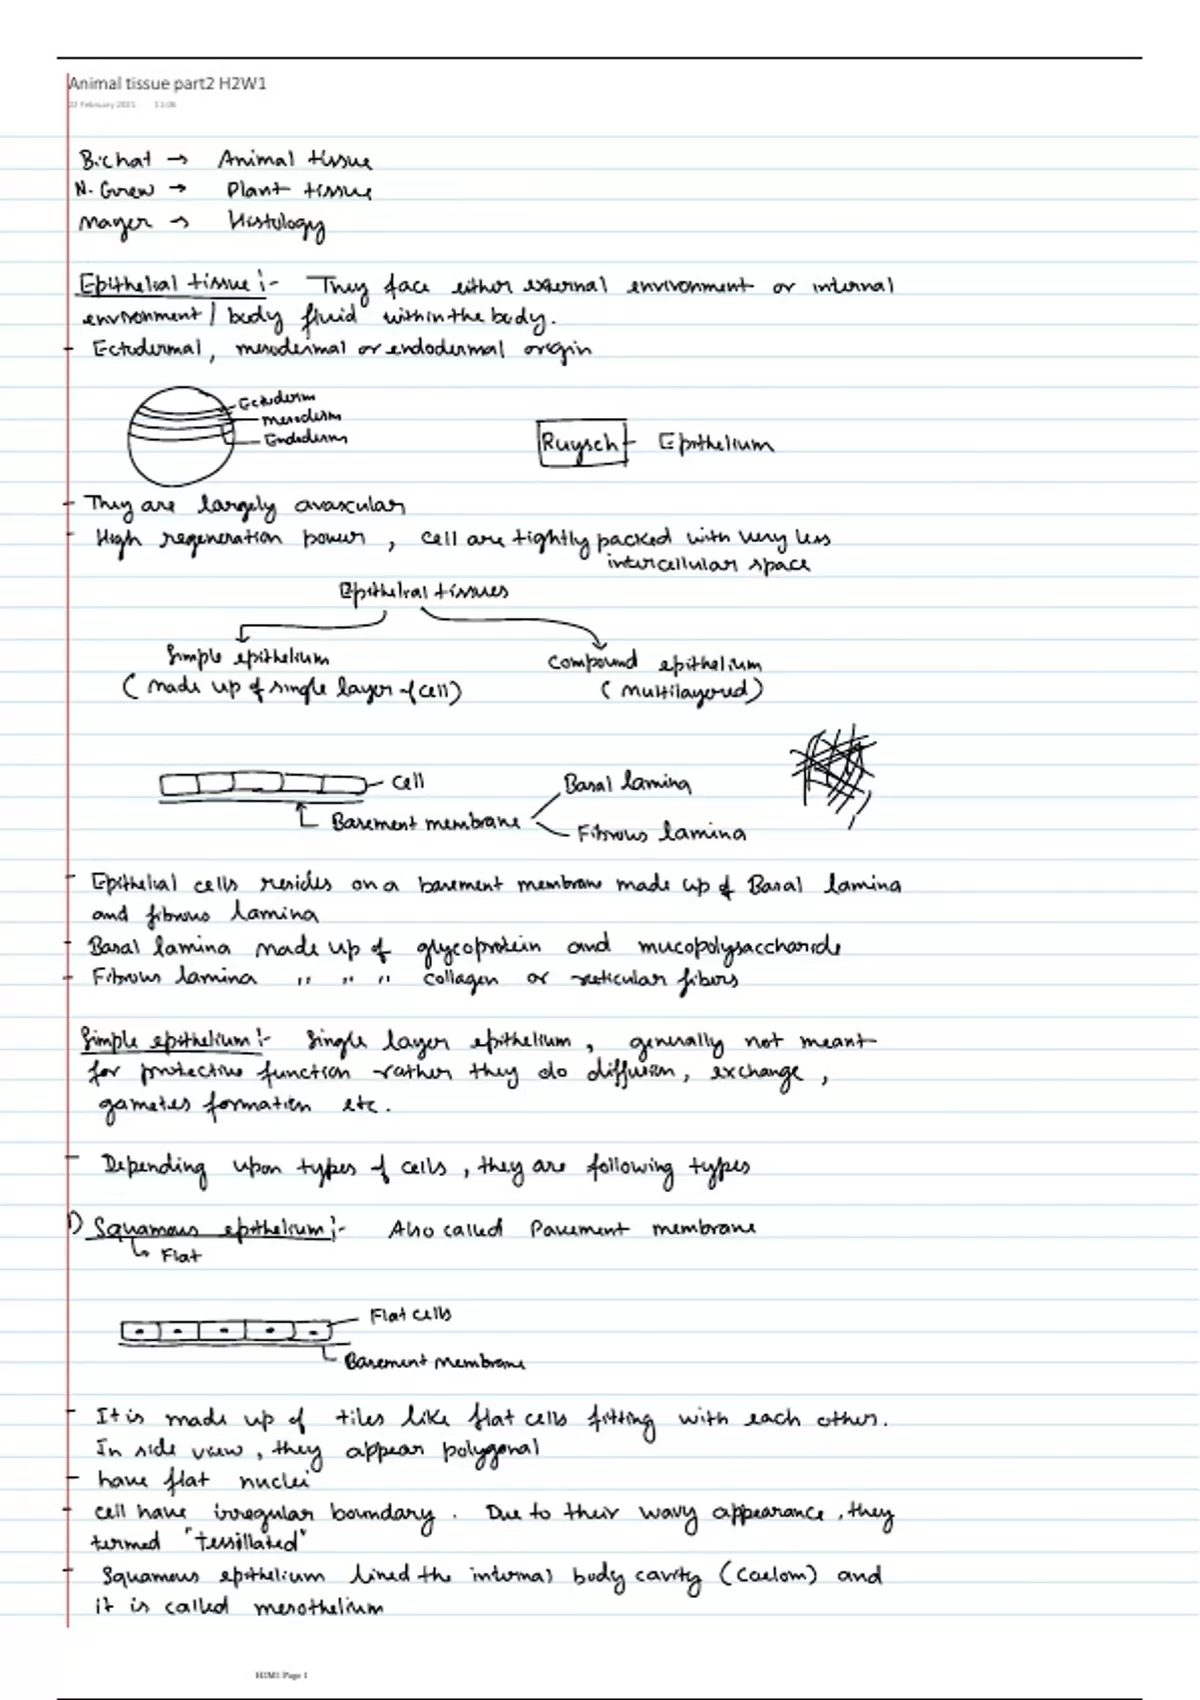 Animal tissue part2 H2W1
22 February 2021 11:06
Bichat → Animal tissue
N. Grew → Plant tissue
Mayer → Histology
Epithelial tissue :- They face either external environment or internal
environment / body fluid within the body.
- Ectodermal, mesodermal or endodermal origin
Ectoderm
Mesoderm
Endoderm
Ruysch - Epithelium
- They are largely avascular
- High regeneration power, cell are tightly packed with very less
intercellular space
Epithelial tissues
Simple epithelium
(made up of single layer of cell)
Compound epithelium
(multilayered)
Cell
Basement membrane
Basal lamina
Fibrous lamina
- Epithelial cells resides on a basement membrane made up of Basal lamina
and fibrous lamina
- Basal lamina made up of glycoprotein and mucopolysaccharide
- Fibrous lamina " " " collagen or reticular fibers
Simple epithelium :- Single layer epithelium, generally not meant
for protective function rather they do diffusion, exchange,
gametes formation etc.
- Depending upon types of cells, they are following types
1) Squamous epithelium :- Also called Pavement membrane
↳ Flat
Flat cells
Basement membrane
- It is made up of tiles like flat cells fitting with each other.
In side view, they appear polygonal
- have flat nuclei
- cell have irregular boundary. Due to their wavy appearance, they
termed "tessillated"
- Squamous epithelium lined the internal body cavity (Caelom) and
it is called mesothelium
H2W1 Page 1